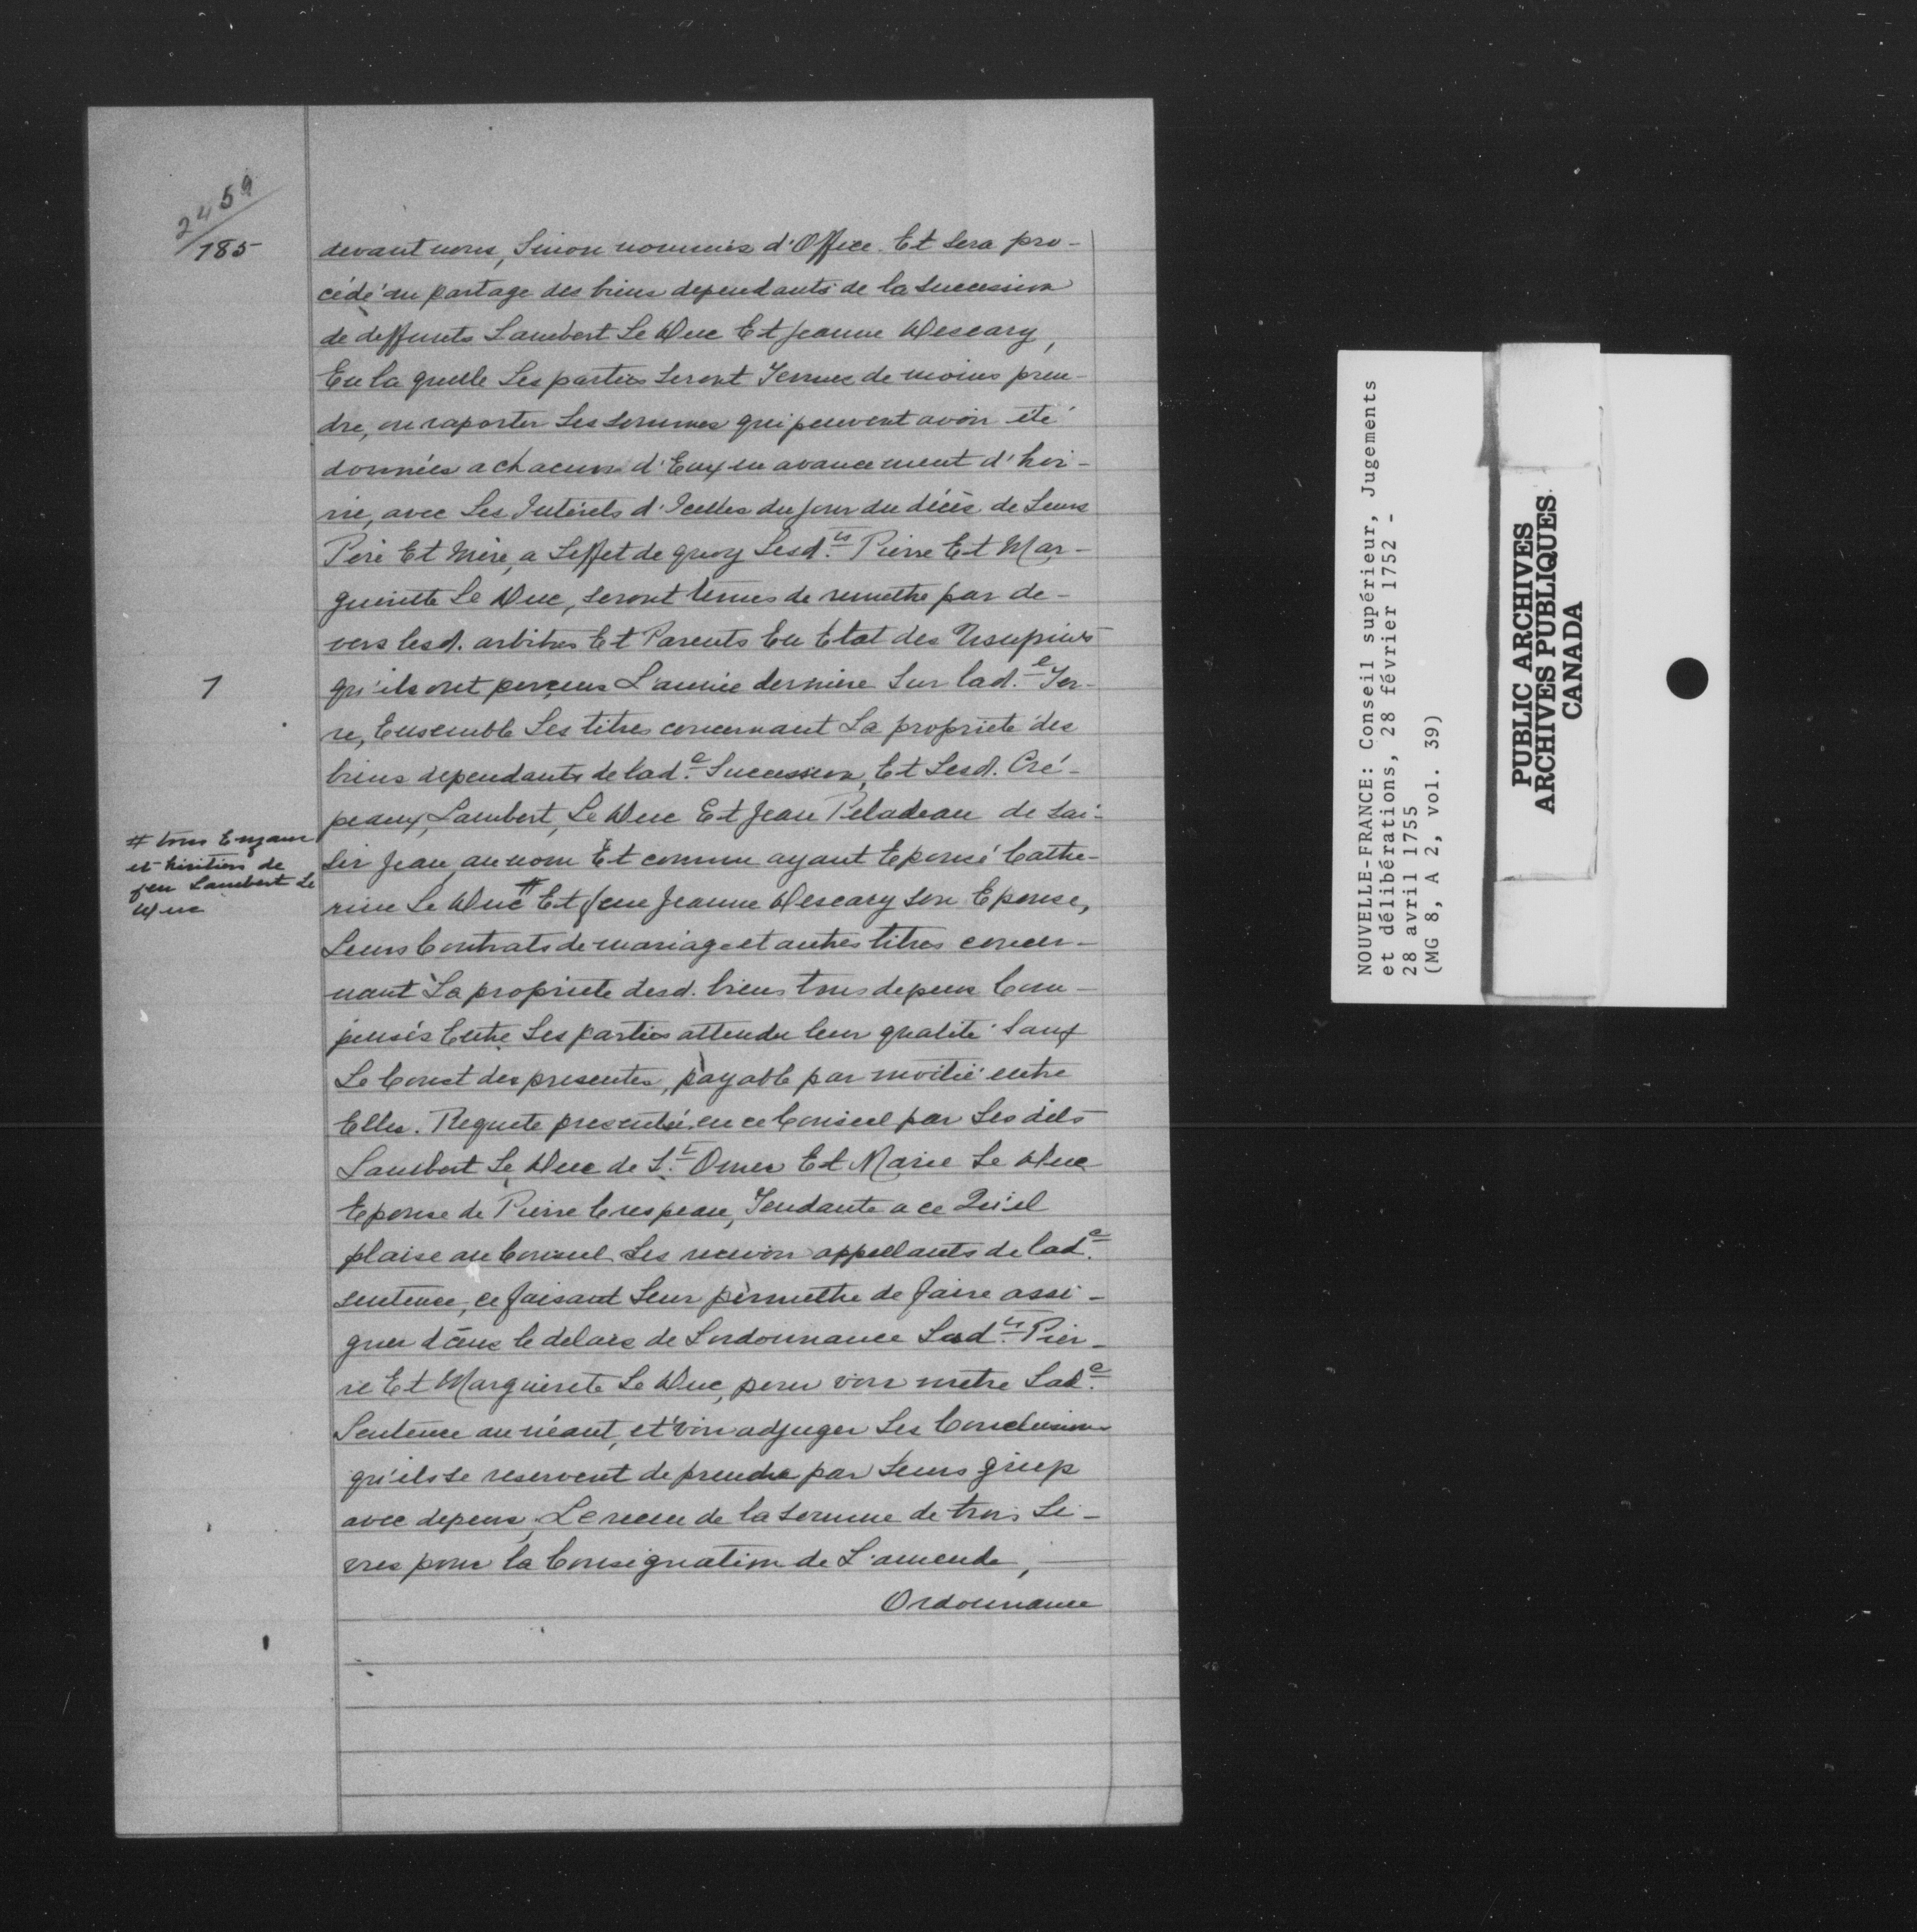 2459
185
devant nous, Sinon nommés d'Office. Et sera pro-
cédé au partage des biens dependants de la succession
de deffunts Lambert Le Duc Et Jeanne Descary,
En la quelle Les parties seront Tenues de moins pren-
dre, ou raporter Les sommes qui peuvent avoir été
données a chacuns d'Eux en avancement d'hoi-
rie, avec Les Intérêts d'Icelles du jour du décès de Leurs
Pere Et Mere, a L'effet de quoy Lesd.ts Pierre Et Mar-
guerite Le Duc, seront tenus de remettre par de-
vers lesd. arbitres Et Parents En Etat des Usufruits
1
qu'ils ont perçeus L'année derniere Sur lad.e Ter-
re, Ensemble Les titres concernant La propriete des
biens dependants de lad.e Succession, Et Lesd. Cré-
peaux, Lambert, Le Duc Et Jean Peladeau de sai-
# tous Enfans
et héritiers de
feu Lambert Le
Duc
sir Jean au nom Et comme ayant Epousé Cathe-
rine Le Duc # Et feue Jeanne Descary son Epouse,
Leurs Contrats de mariage et autres titres concer-
nant La propriete desd. biens tous depens Com-
pensés Entre Les parties attendu leur qualité sauf
Le Coust des presentes, payable par moitié entre
Elles. Requete presentée en ce Conseil par Les dits
Lambert Le Duc de S.t Omer Et Marie Le Duc
Epouse de Pierre Crespeau, Tendante a ce Qu'il
plaise au Conseil Les recevoir appellants de lad.e
sentence, ce faisant Leur permettre de faire assi-
gner dans le delais de Lordonnance Lesd.ts Pier-
re Et Marguerite Le Duc, pour voir metre Lad.e
Sentence au néant, et voir adjuger Les Conclusions
qu'ils se reservent de prendre par Leurs griefs
avec depens, Le receu de la somme de trois Li-
vres pour la Consignation de L'amende,
Ordonnance
NOUVELLE-FRANCE: Conseil supérieur, Jugements
et délibérations, 28 février 1752 -
28 avril 1755
(MG 8, A 2, vol. 39)
PUBLIC ARCHIVES
ARCHIVES PUBLIQUES
CANADA